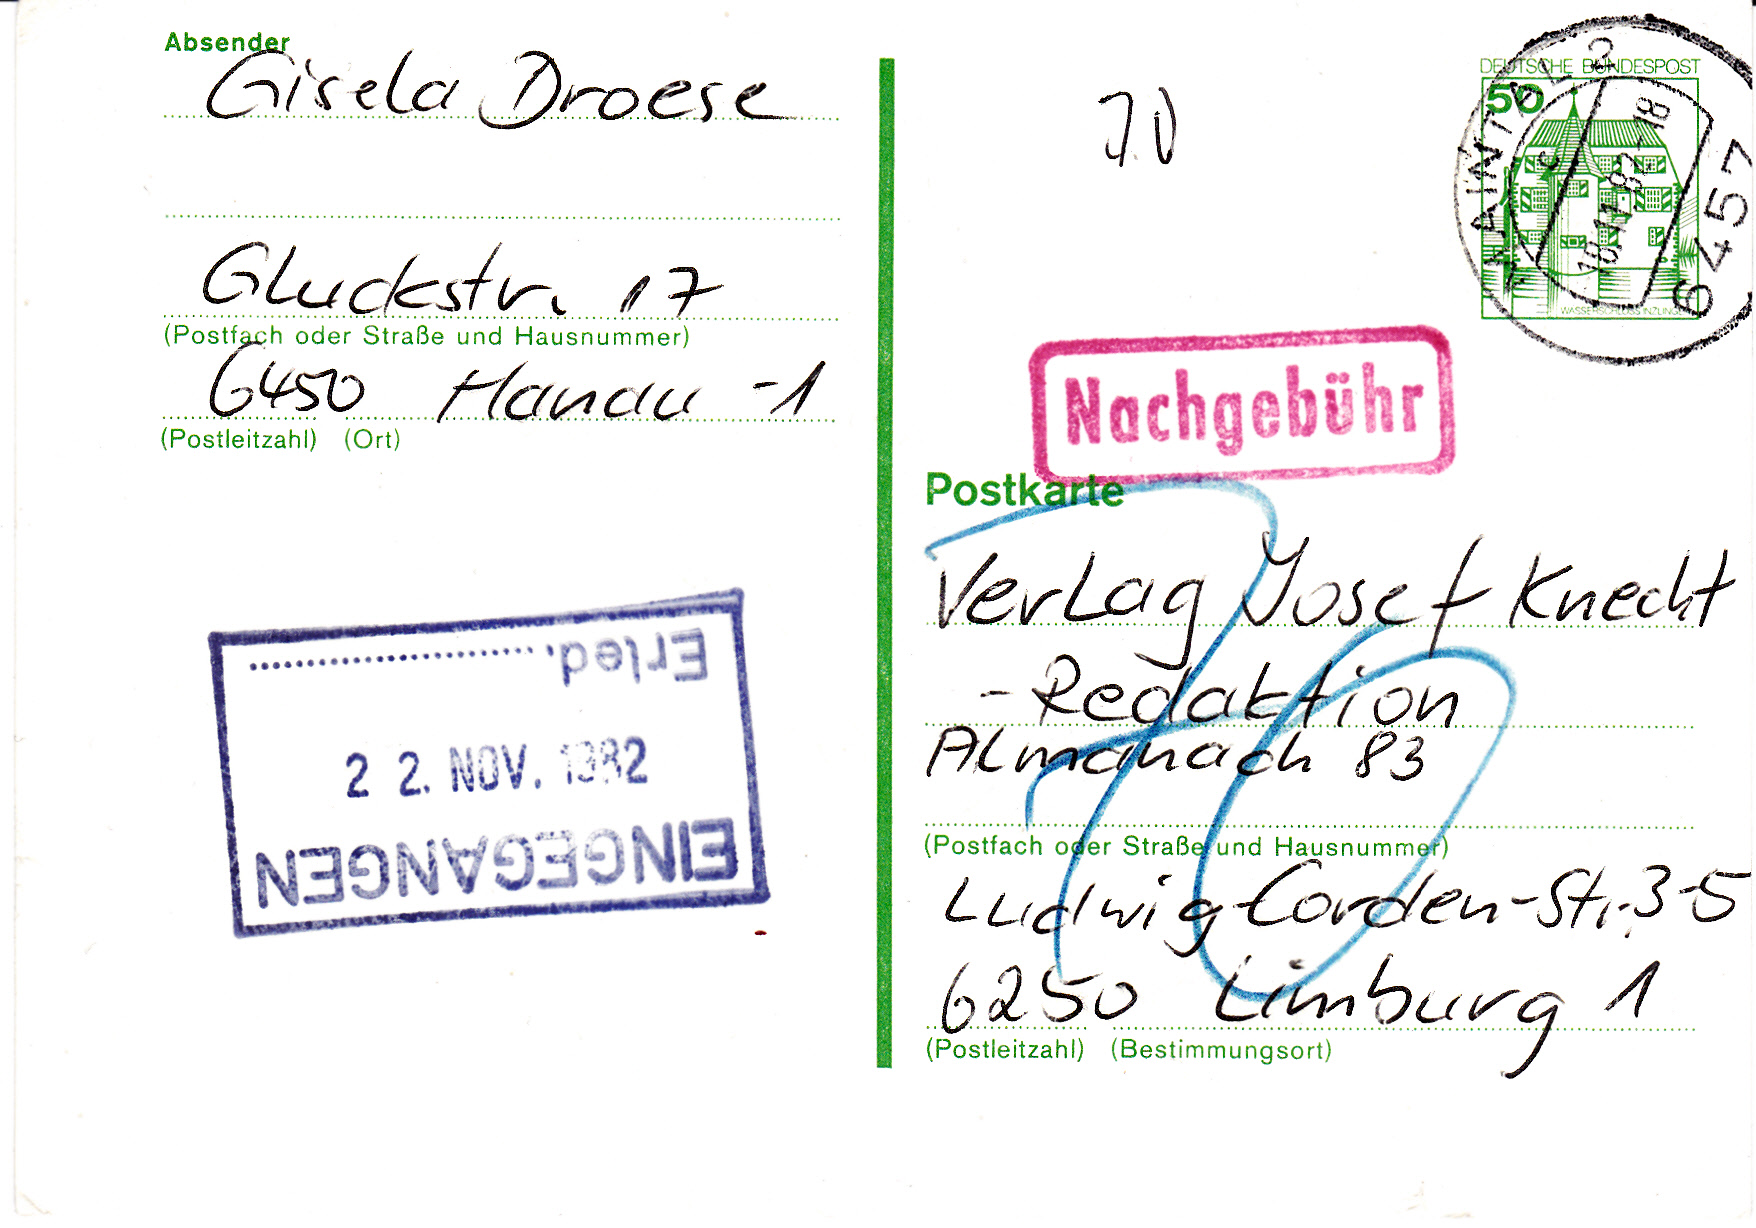 Absender
Gisela Droese
Gluckstr. 17
(Postfach oder Straße und Hausnummer)
6450 Hanau -1
(Postleitzahl) (Ort)
Erled.
22. NOV. 1982
EINGEGANGEN
70
DEUTSCHE BUNDESPOST
50
WASSERSCHLOSS INZLINGEN
MAINTAL 3
c
18.11.82-18
6457
Nachgebühr
Postkarte
70
Verlag Josef Knecht
- Redaktion
Almanach 83
(Postfach oder Straße und Hausnummer)
Ludwig-Corden-Str. 3-5
6250 Limburg 1
(Postleitzahl) (Bestimmungsort)